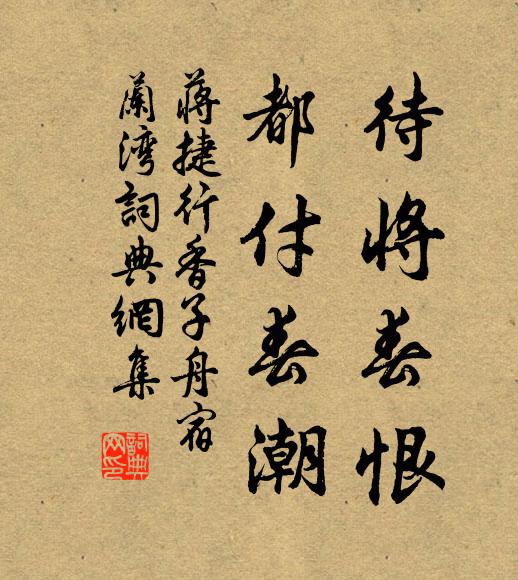 待將春恨
都付春潮
蔣捷行香子舟宿
蘭湾詞典網集
詞典网印